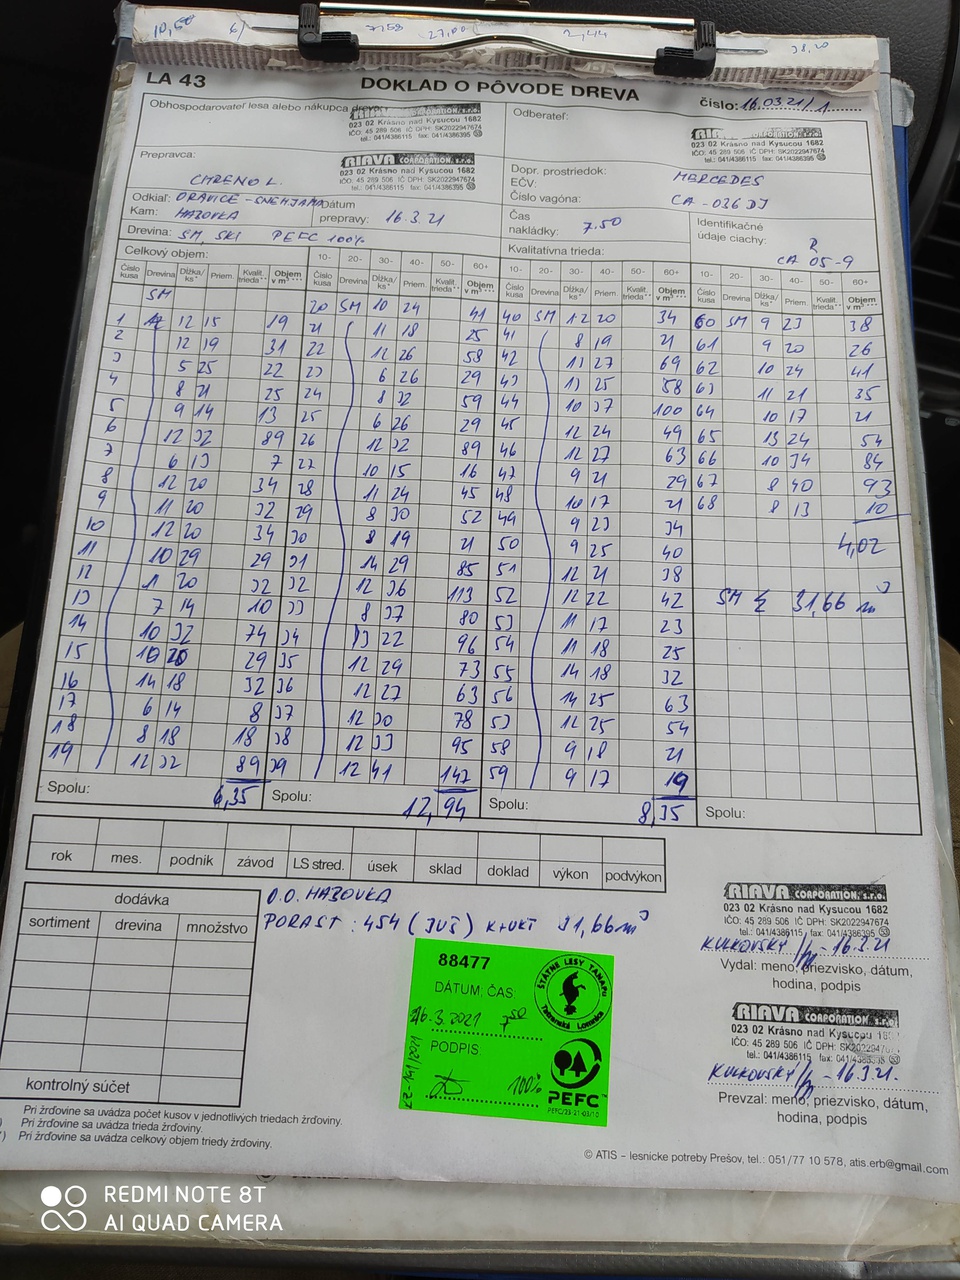 10,50 6/ 7,58 27,00 2,44 38,20
LA 43 DOKLAD O PÔVODE DREVA číslo: 16.03.21/1
Obhospodarovateľ lesa alebo nákupca dreva:
RIAVA CORPORATION, s.r.o.
023 02 Krásno nad Kysucou 1682
IČO: 45 289 506 IČ DPH: SK2022947674
tel.: 041/4386115 fax: 041/4386395
Odberateľ:
RIAVA CORPORATION, s.r.o.
023 02 Krásno nad Kysucou 1682
IČO: 45 289 506 IČ DPH: SK2022947674
tel.: 041/4386115 fax: 041/4386395
Prepravca:
CHRENO L.
RIAVA CORPORATION, s.r.o.
023 02 Krásno nad Kysucou 1682
IČO: 45 289 506 IČ DPH: SK2022947674
tel.: 041/4386115 fax: 041/4386395
Dopr. prostriedok: MERCEDES
EČV:
Číslo vagóna: CA-036DJ
Odkiaľ: ORAVICE -
Kam: HAZOVKA
Dátum prepravy: 16.3.21
Čas nakládky: 7.50
Identifikačné údaje ciachy: R CA 05-9
Drevina: SM, SKI PEFC 100%
Kvalitatívna trieda:
Celkový objem:
10- 20- 30- 40- 50- 60+ 10- 20- 30- 40- 50- 60+ 10- 20- 30- 40- 50- 60+
Číslo kusa Drevina Dĺžka/ks* Priem. Kvalit. trieda** Objem v m³ ***
SM 20 SM 10 24 41 40 SM 12 20 34 60 SM 9 23 38
1 12 15 19 21 11 18 25 41 8 19 21 61 9 20 26
2 12 19 31 22 12 26 58 42 13 27 69 62 10 24 41
3 5 25 22 23 6 26 29 43 13 25 58 63 11 21 35
4 8 21 25 24 8 32 59 44 10 37 100 64 10 17 21
5 9 14 13 25 6 26 29 45 12 24 49 65 13 24 54
6 12 32 89 26 12 32 89 46 12 27 63 66 10 34 84
7 6 13 7 27 10 15 16 47 9 21 29 67 8 40 93
8 12 20 34 28 11 24 45 48 10 17 21 68 8 13 10
9 11 20 32 29 8 30 52 49 9 23 34
4,02
10 12 20 34 30 8 19 21 50 9 25 40
11 10 29 29 31 14 29 85 51 12 21 38
12 11 20 32 32 12 36 113 52 12 22 42
SM Σ 31,66 m³
13 7 14 10 33 8 37 80 53 11 17 23
14 10 32 74 34 13 22 96 54 11 18 25
15 10 20 29 35 12 29 73 55 14 18 32
16 14 18 32 36 12 27 63 56 14 25 63
17 6 14 8 37 12 30 78 53 12 25 54
18 8 18 18 38 12 33 95 58 9 18 21
19 12 32 89 39 12 41 147 59 9 17 19
Spolu: 6,35 Spolu: 12,94 Spolu: 8,35 Spolu:
rok mes. podnik závod LS stred. úsek sklad doklad výkon podvýkon
dodávka
sortiment drevina množstvo
kontrolný súčet
O.O. HAZOVKA
PORAST: 454 (JUŠ) K+UKT 31,66 m³
88477
DÁTUM, ČAS:
16.3.2021 7 50
PODPIS:
100%
ŠTÁTNE LESY TANAPu
Tatranská Lomnica
PEFC™
PEFC/23-21-03/10
RIAVA CORPORATION, s.r.o.
023 02 Krásno nad Kysucou 1682
IČO: 45 289 506 IČ DPH: SK2022947674
tel.: 041/4386115 fax: 041/4386395
KULKOVSKÝ - 16.3.21
Vydal: meno, priezvisko, dátum,
hodina, podpis
RIAVA CORPORATION, s.r.o.
023 02 Krásno nad Kysucou 1682
IČO: 45 289 506 IČ DPH: SK2022947674
tel.: 041/4386115 fax: 041/4386395
KULKOVSKÝ - 16.3.21.
Prevzal: meno, priezvisko, dátum,
hodina, podpis
Pri žrďovine sa uvádza počet kusov v jednotlivých triedach žrďoviny.
) Pri žrďovine sa uvádza trieda žrďoviny.
) Pri žrďovine sa uvádza celkový objem triedy žrďoviny.
© ATIS – lesnícke potreby Prešov, tel.: 051/77 10 578, atis.erb@gmail.com
REDMI NOTE 8T
AI QUAD CAMERA